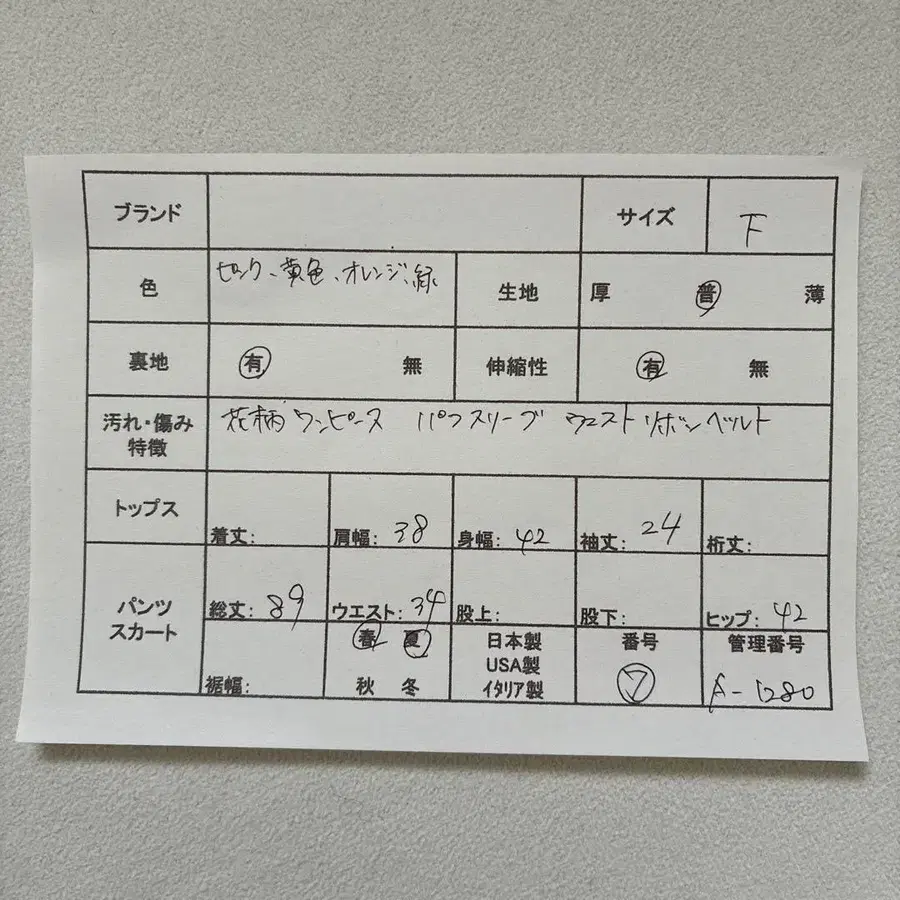 ブランド サイズ 下
色 ピンク、黄色、オレンジ、緑 生地 厚 普 薄
裏地 有 無 伸縮性 有 無
汚れ・傷み 花柄 ワンピース パフスリーブ ウエストリボンベルト
特徴
トップス 着丈: 肩幅: 38 身幅: 42 袖丈: 24 裄丈:
パンツ 総丈: 89 ウエスト: 34 股上: 股下: ヒップ: 42
スカート 裾幅:
春 夏
秋 冬
日本製
USA製
イタリア製
番号
管理番号
A-1280